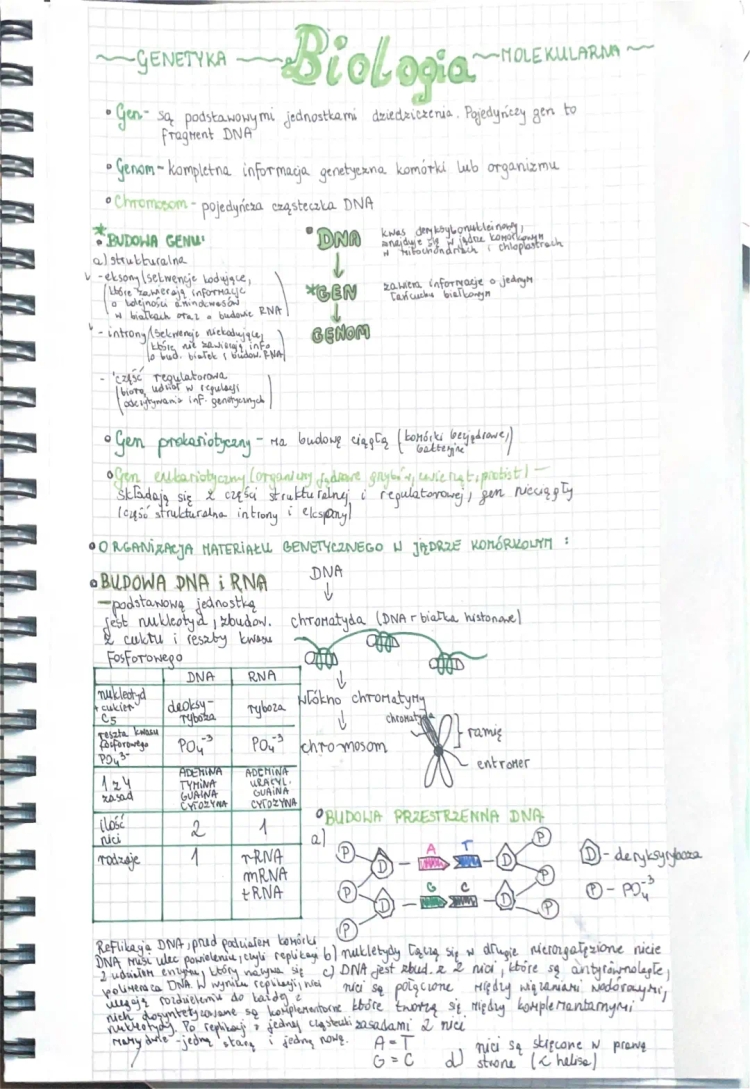 ~GENETYKA~ Biologia ~MOLEKULARNA~
• Gen - są podstawowymi jednostkami dziedziczenia. Pojedyńczy gen to
fragment DNA
• Genom - kompletna informacja genetyczna komórki lub organizmu
• Chromosom - pojedyńcza cząsteczka DNA
* • BUDOWA GENU:
a) strukturalna
- eksony (sekwencje kodujące,
które zawierają informacje
o kolejności aminokwasów
w białkach oraz o budowie RNA)
- introny (sekwencje niekodujące,
które nie zawierają info
o bud. białek i budow. RNA)
- część regulatorowa
(biorą udział w regulacji
odczytywania inf. genetycznych)
• DNA
kwas deryksybonukleinowy,
znajduje się w jądrze komórkowym
w mitochondriach i chloplastrach
↓
*GEN
zawiera informacje o jednym
łańcuchu białkowym
↓
GENOM
• Gen prokariotyczny - ma budowę ciągłą (komórki bezjądrowe,
bakteryjne)
• Gen eukariotyczny (organizmy jądrowe grzybów, zwierząt, protist) -
składają się z części strukturalnej i regulatorowej, gen nieciągły
(część strukturalna introny i eksony)
• ORGANIZACJA MATERIAŁU GENETYCZNEGO W JĄDRZE KOMÓRKOWYM :
DNA
↓
chromatyda (DNA + białka histonowe)
↓
włókno chromatyny
↓
chromosom
chromatyda
ramię
entromer
• BUDOWA DNA i RNA
- podstawową jednostką
jest nukleotyd, zbudow.
z cukru i reszty kwasu
fosforowego
DNA RNA
nukleotyd + cukier C5 deoksy-ryboza ryboza
reszta kwasu fosforowego PO₄³⁻ PO₄⁻³ PO₄⁻³
1 z 4 zasad ADENINA TYMINA GUAINA CYTOZYNA ADENINA URACYL GUAINA CYTOZYNA
ilość nici 2 1
rodzaje 1 rRNA mRNA tRNA
• BUDOWA PRZESTRZENNA DNA
a)
P D A T D P
P D G C D P
P P
D - deryksyryboza
P - PO₄⁻³
Replikacja DNA, przed podziałem komórki
DNA musi ulec powieleniu, czyli replikacji
z udziałem enzymu, który nazywa się
polimeraza DNA. W wyniku replikacji, nici
ulegają rozdzieleniu do każdej z
nich dosyntetyzowane są komplementarne
nukleotydy. Po replikacji z jednej cząsteczki
mamy dwie - jedną starą i jedną nową.
b) nukletydy łączą się w długie nierozgałęzione nicie
c) DNA jest zbud. z 2 nici, które są antyrównoległe,
nici są połączone między wiązaniami wodorowymi,
które tworzą się między komplementarnymi
zasadami 2 nici
A = T
G = C
d) nici są skręcone w prawą
stronę (α helisa)